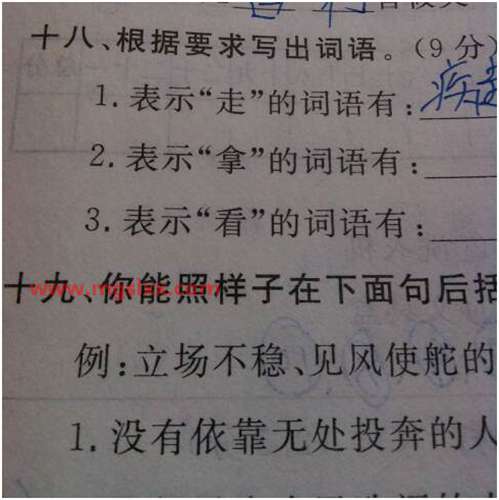 十八、根据要求写出词语。(9分)
1.表示“走”的词语有:疾走
2.表示“拿”的词语有:
3.表示“看”的词语有:
十九、你能照样子在下面句后括
例:立场不稳、见风使舵的
1.没有依靠无处投奔的人